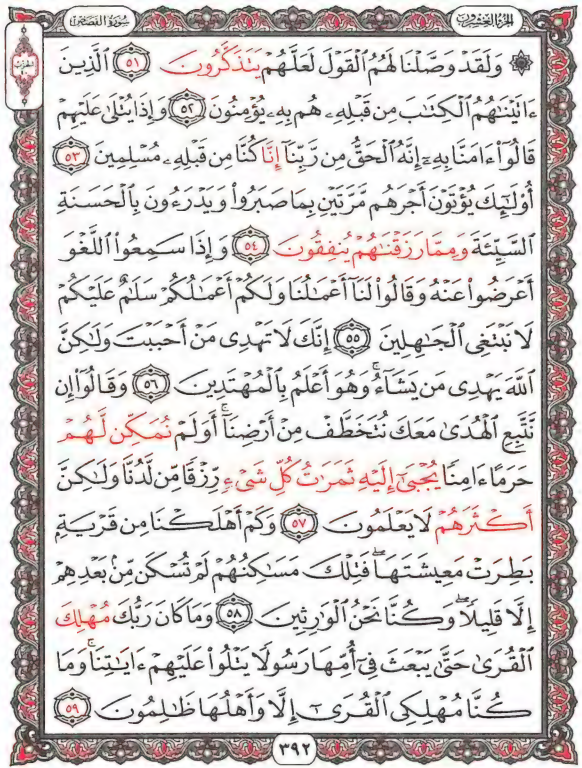 الجزء العشرون
سورة القصص
۞ وَلَقَدْ وَصَّلْنَا لَهُمُ الْقَوْلَ لَعَلَّهُمْ يَتَذَكَّرُونَ ٥١ الَّذِينَ
ءَاتَيْنَٰهُمُ الْكِتَٰبَ مِن قَبْلِهِۦ هُم بِهِۦ يُؤْمِنُونَ ٥٢ وَإِذَا يُتْلَىٰ عَلَيْهِمْ
قَالُوٓا۟ ءَامَنَّا بِهِۦٓ إِنَّهُ الْحَقُّ مِن رَّبِّنَآ إِنَّا كُنَّا مِن قَبْلِهِۦ مُسْلِمِينَ ٥٣
أُو۟لَٰٓئِكَ يُؤْتَوْنَ أَجْرَهُم مَّرَّتَيْنِ بِمَا صَبَرُوا۟ وَيَدْرَءُونَ بِالْحَسَنَةِ
السَّيِّئَةَ وَمِمَّا رَزَقْنَٰهُمْ يُنفِقُونَ ٥٤ وَإِذَا سَمِعُوا۟ اللَّغْوَ
أَعْرَضُوا۟ عَنْهُ وَقَالُوا۟ لَنَآ أَعْمَٰلُنَا وَلَكُمْ أَعْمَٰلُكُمْ سَلَٰمٌ عَلَيْكُمْ
لَا نَبْتَغِى الْجَٰهِلِينَ ٥٥ إِنَّكَ لَا تَهْدِى مَنْ أَحْبَبْتَ وَلَٰكِنَّ
اللَّهَ يَهْدِى مَن يَشَآءُ ۚ وَهُوَ أَعْلَمُ بِالْمُهْتَدِينَ ٥٦ وَقَالُوٓا۟ إِن
نَّتَّبِعِ الْهُدَىٰ مَعَكَ نُتَخَطَّفْ مِنْ أَرْضِنَآ ۚ أَوَلَمْ نُمَكِّن لَّهُمْ
حَرَمًا ءَامِنًا يُجْبَىٰٓ إِلَيْهِ ثَمَرَٰتُ كُلِّ شَىْءٍ رِّزْقًا مِّن لَّدُنَّا وَلَٰكِنَّ
أَكْثَرَهُمْ لَا يَعْلَمُونَ ٥٧ وَكَمْ أَهْلَكْنَا مِن قَرْيَةٍۭ
بَطِرَتْ مَعِيشَتَهَا ۖ فَتِلْكَ مَسَٰكِنُهُمْ لَمْ تُسْكَن مِّنۢ بَعْدِهِمْ
إِلَّا قَلِيلًا ۖ وَكُنَّا نَحْنُ الْوَٰرِثِينَ ٥٨ وَمَا كَانَ رَبُّكَ مُهْلِكَ
الْقُرَىٰ حَتَّىٰ يَبْعَثَ فِىٓ أُمِّهَا رَسُولًا يَتْلُوا۟ عَلَيْهِمْ ءَايَٰتِنَا ۚ وَمَا
كُنَّا مُهْلِكِى الْقُرَىٰٓ إِلَّا وَأَهْلُهَا ظَٰلِمُونَ ٥٩
٣٩٢